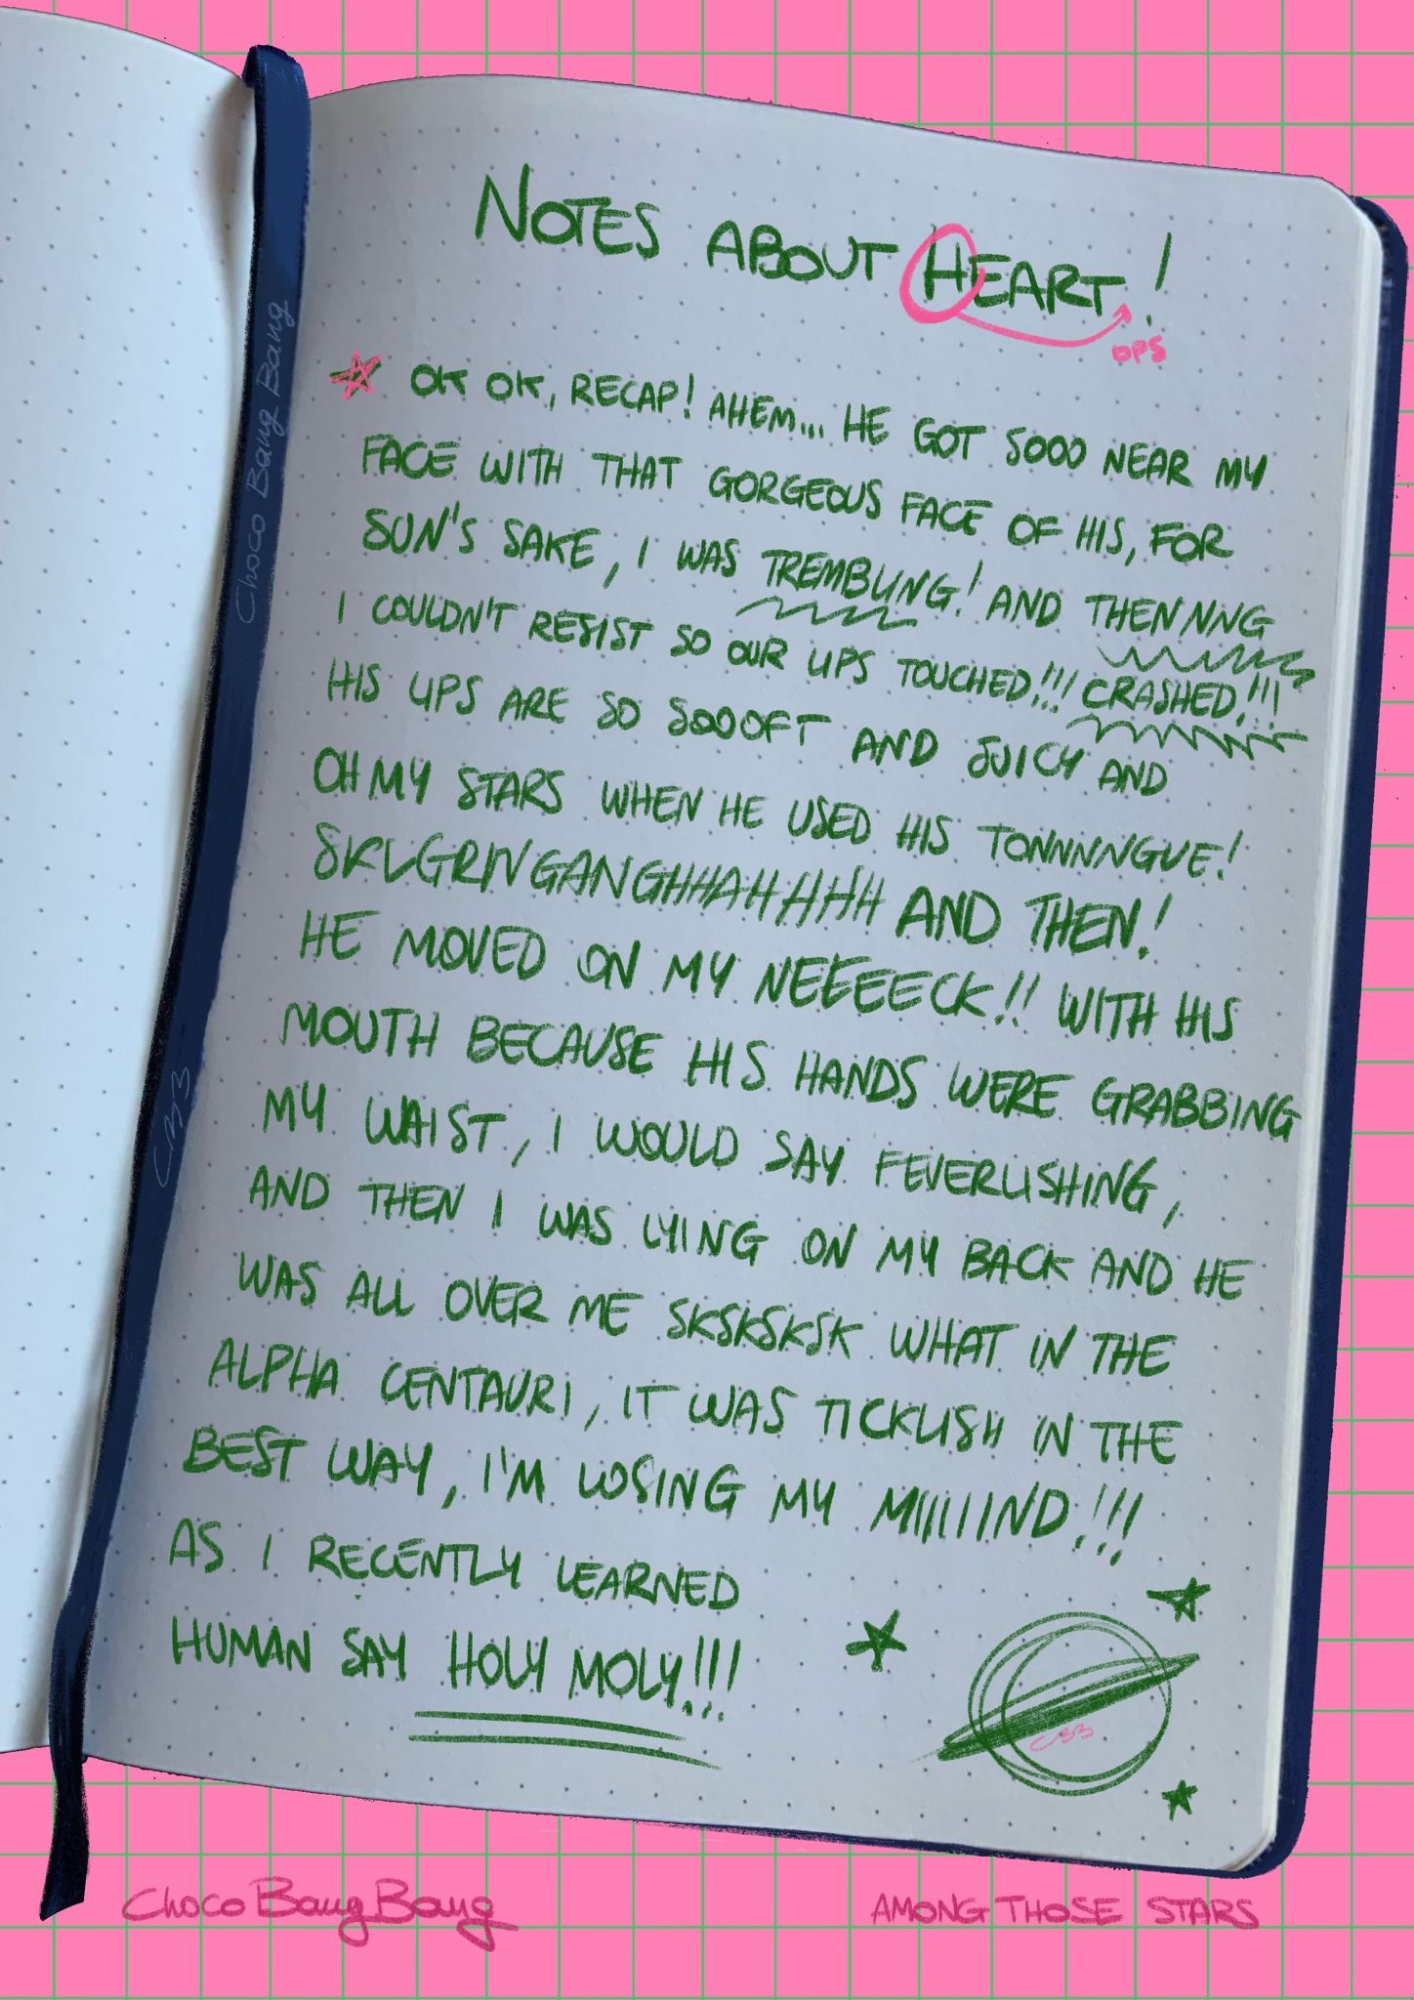 NOTES ABOUT HEART!
OPS
OK OK, RECAP! AHEM... HE GOT SOOO NEAR MY
FACE WITH THAT GORGEOUS FACE OF HIS, FOR
SUN'S SAKE, I WAS TREMBLING! AND THENNNNG
I COULDN'T RESIST SO OUR LIPS TOUCHED!!! CRASHED!!!
HIS LIPS ARE SO SOOOFT AND JUICY AND
OH MY STARS WHEN HE USED HIS TONNNNGUE!
SKLGRNGANGHHAHHHH AND THEN!
HE MOVED ON MY NEEEEECK!! WITH HIS
MOUTH BECAUSE HIS HANDS WERE GRABBING
MY WAIST, I WOULD SAY FEVERLISHING,
AND THEN I WAS LYING ON MY BACK AND HE
WAS ALL OVER ME SKSKSKSK WHAT IN THE
ALPHA CENTAURI, IT WAS TICKLISH IN THE
BEST WAY, I'M LOSING MY MIIIIIIND!!!
AS I RECENTLY LEARNED
HUMAN SAY HOLY MOLY!!!
CBB
Choco Bang Bang
CBB
Choco Bang Bang
AMONG THOSE STARS